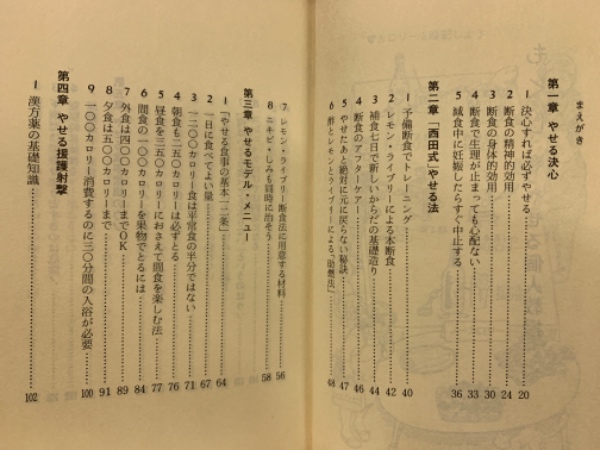 まえがき
第一章 やせる決心
1 決心すれば必ずやせる……20
2 断食の精神的効用……24
3 断食の身体的効用……30
4 断食で生理が止まっても心配ない……33
5 減食中に妊娠したらすぐ中止する……36
第二章 「西田式」やせる法
1 予備断食でトレーニング……40
2 レモン・ライブリーによる本断食……42
3 補食七日で新しいからだの基礎造り……44
4 断食のアフターケアー……46
5 やせたあと絶対に元に戻らない秘訣……47
6 酢とレモンとライブリーによる「助燃法」……48
7 レモン・ライブリー断食法に用意する材料……56
8 ニキビ・しみも同時に治そう……58
第三章 やせるモデル・メニュー
1 「やせる食事の基本一二条」……64
2 一日に食べてよい量……67
3 一二〇〇カロリー食は平常食の半分ではない……71
4 朝食も二五〇カロリーは必ずとる……76
5 昼食を三五〇カロリーにおさえて間食を楽しむ法……77
6 間食の一〇〇カロリーを果物でとるには……84
7 外食は四〇〇カロリーまでOK……89
8 夕食は五〇〇カロリーまで……91
9 一〇〇カロリー消費するのに三〇分間の入浴が必要……100
第四章 やせる援護射撃
1 漢方薬の基礎知識……102